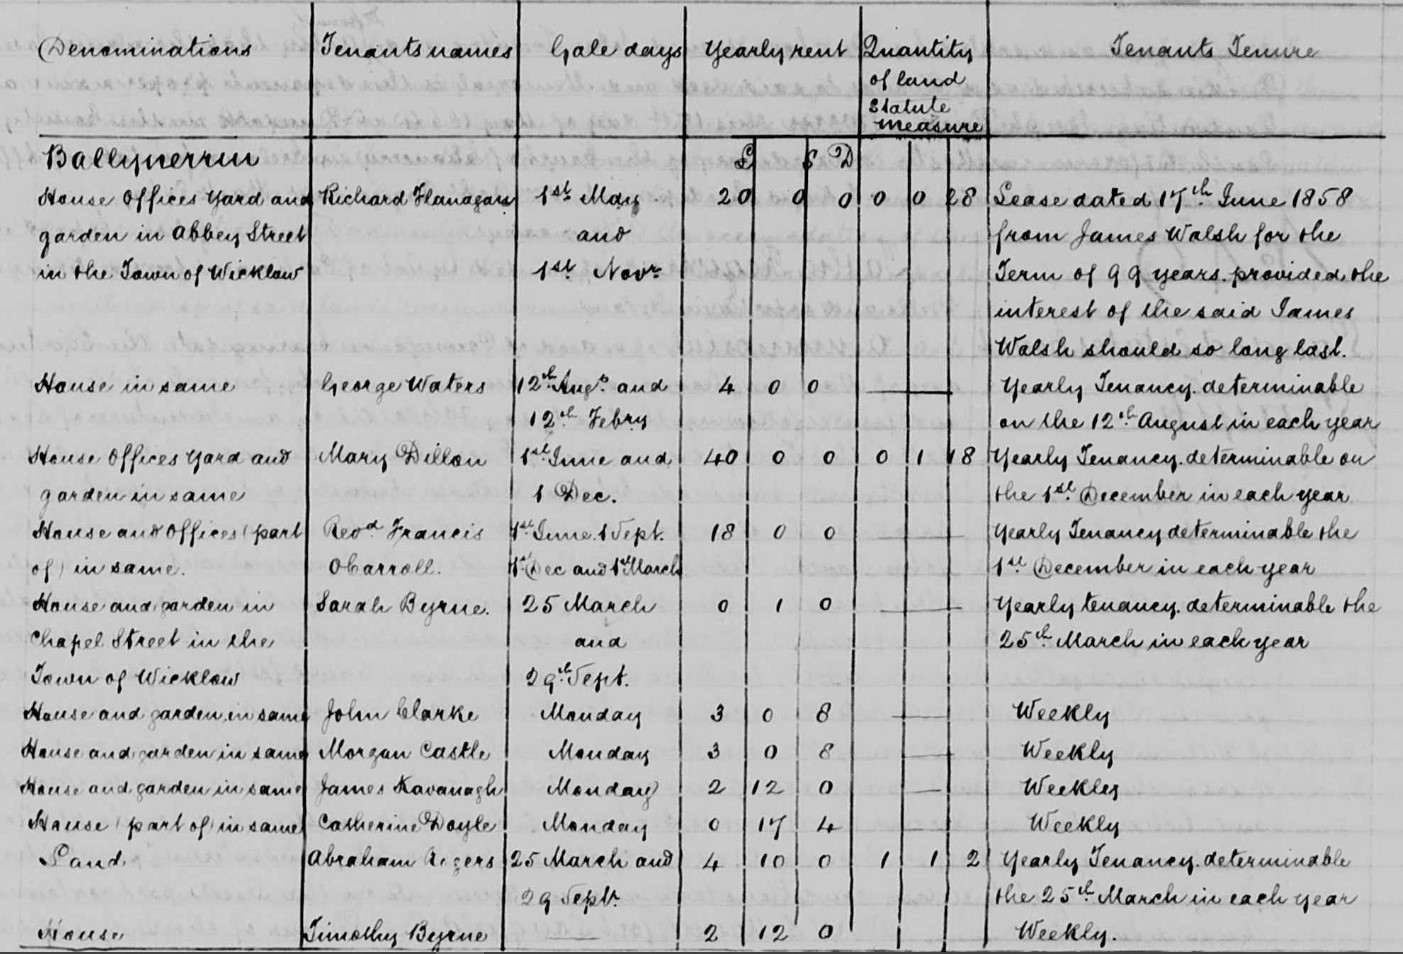 Denominations Tenants names Gale days Yearly rent Quantity Tenants Tenure
of land
Statute
measure
Ballynerrin £ S D
House Offices Yard and Richard Flanagan 1st May 20 0 0 0 0 28 Lease dated 17th June 1858
garden in Abbey Street and from James Walsh for the
in the Town of Wicklow 1st Novr Term of 99 years provided the
interest of the said James
Walsh should so long last.
House in same George Waters 12th Augt and 4 0 0 — Yearly Tenancy determinable
12th Febry on the 12th August in each year
House Offices Yard and Mary Dillon 1st June and 40 0 0 0 1 18 Yearly Tenancy determinable on
garden in same 1 Dec. the 1st December in each year
House and Offices (part Revd Francis 1st June 1 Sept. 18 0 0 — Yearly Tenancy determinable the
of) in same. OCarroll. 1st Dec and 1st March 1st December in each year
House and garden in Sarah Byrne. 25 March 0 1 0 — Yearly tenancy determinable the
Chapel Street in the and 25th March in each year
Town of Wicklow 29th Sept.
House and garden in same John Clarke Monday 3 0 8 — Weekly
House and garden in same Morgan Castle Monday 3 0 8 — Weekly
House and garden in same James Kavanagh Monday 2 12 0 — Weekley
House (part of) in same Catherine Doyle Monday 0 17 4 Weekly
Land Abraham Rogers 25 March and 4 10 0 1 1 2 Yearly Tenancy determinable
29 Sept. the 25th March in each year
House Timothy Byrne — 2 12 0 Weekly.